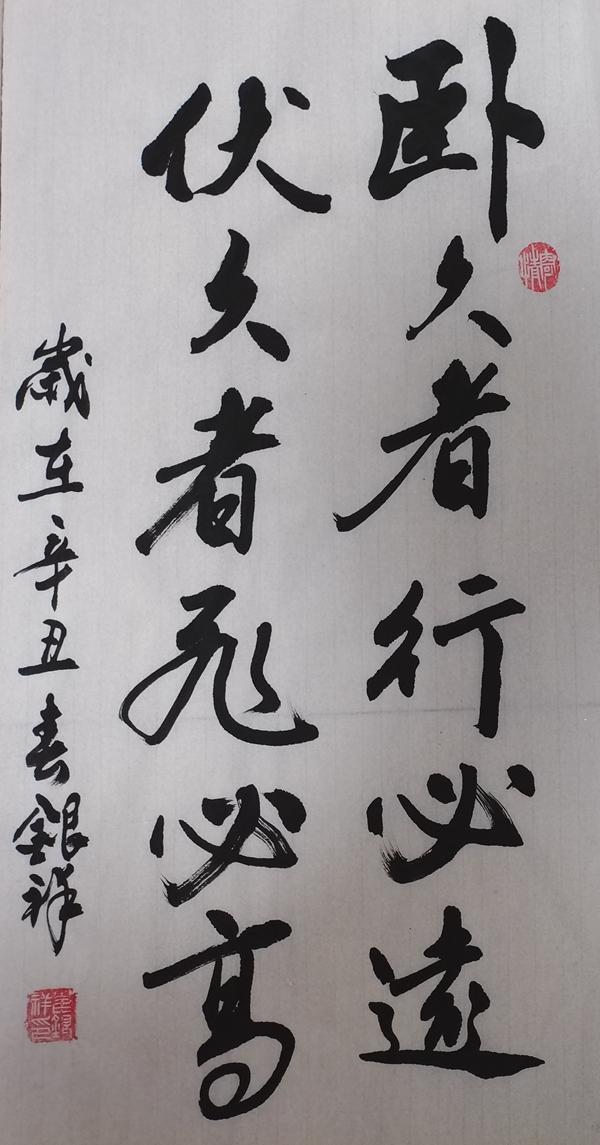 卧久者行必遠
伏久者飛必高
歲在辛丑春銀祥